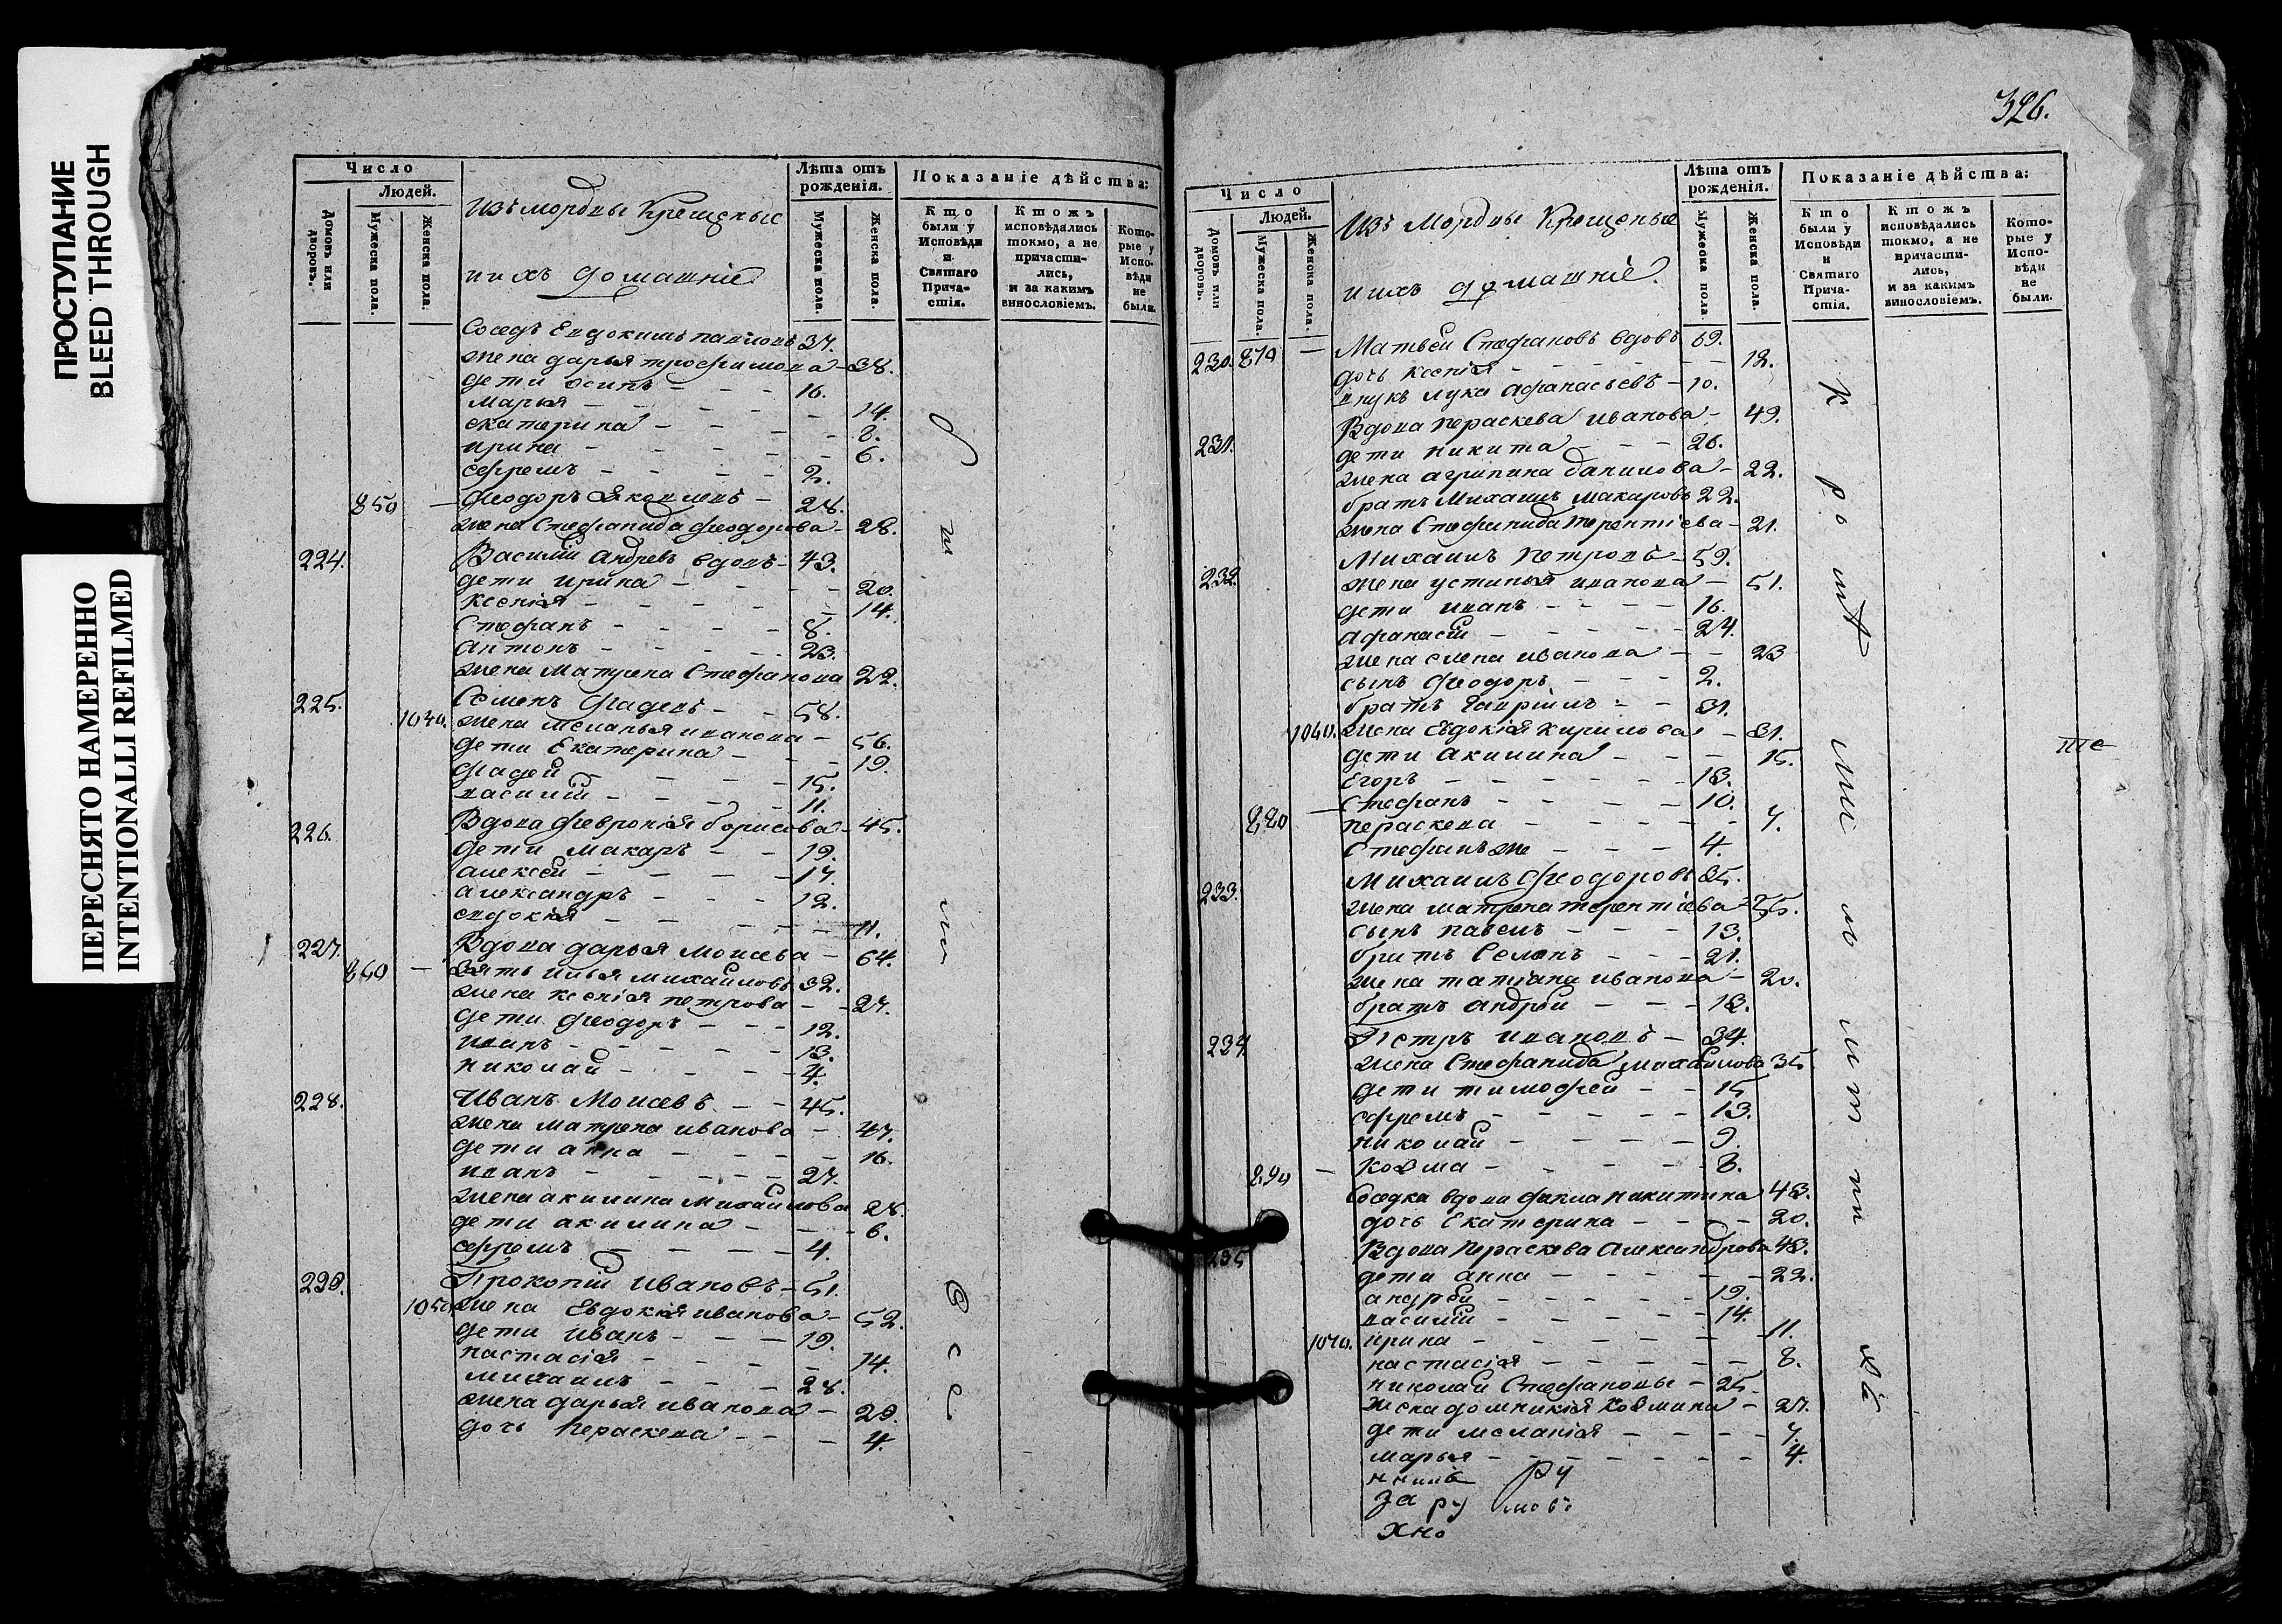 ПРОСТУПАНИЕ
BLEED THROUGH
ПЕРЕСНЯТО НАМЕРЕННО
INTENTIONALLI REFILMED
Число
Людей.
Домовъ или дворовъ.
Мужеска пола.
Женска пола.
Изъ мордвы Крещеные
и ихъ домашніе
Лѣта отъ рожденія.
Мужеска пола.
Женска пола.
Показаніе дѣйства:
Кто были у Исповѣди и Святаго Причастія.
Ктожъ исповѣдались токмо, а не причастились, и за какимъ винословіемъ.
Которые у Исповѣди не были.
Соседъ Евдокимъ 37.
жена дарья трофимова 38.
дети осипъ 16.
марья 14.
екатерина 8.
ирина 6.
ефремъ 2.
850 Феодоръ Яковлевъ 28.
жена Стефанида феодорова 28.
224. Василій андревъ вдовъ 43.
дети ирина 20.
ксенія 14.
Стефанъ 8.
антонъ 23.
жена матрена Стефанова 22.
225. Семенъ фадевъ 58.
1040. жена меланья иванова 56.
дети Екатерина 19.
фадей 15.
василій 11.
226. Вдова февронія борисова 45.
дети макаръ 19.
алексей 17.
александръ 12.
евдокія 11.
227. Вдова дарья моисева 64.
860 Зять илья михайловъ 32.
жена ксенія петрова 27.
дети феодоръ 12.
иванъ 13.
николай 4.
228. Иванъ Моисевъ 45.
жена матрена иванова 47.
дети анна 16.
иванъ 27.
жена акилина михайлова 28.
дети акилина 6.
ефремъ 4.
Прокопій ивановъ 51.
1050 жена Евдокія иванова 52.
дети иванъ 19.
настасія 14.
михаилъ 28.
жена дарья иванова 29.
дочь пераскева 4
326.
Число
Людей.
Домовъ или дворовъ.
Мужеска пола.
Женска пола.
Изъ Мордвы Крещеные
и ихъ домашніе.
Лѣта отъ рожденія.
Мужеска пола.
Женска пола.
Показаніе дѣйства:
Кто были у Исповѣди и Святаго Причастія.
Ктожъ исповѣдались токмо, а не причастились, и за какимъ винословіемъ.
Которые у Исповѣди не были.
230. 870 Матвей Стефановъ вдовъ 69.
дочь ксенія 12.
внукъ лука афанасьевъ 10.
231. Вдова пераскева иванова 49.
дети никита 26.
жена агрипина данилова 22.
братъ михаилъ макаровъ 22.
жена Стефанида терентіева 21.
232. Михаилъ петровъ 59.
жена устинья иванова 51.
дети иванъ 16.
афанасій 24.
жена елена иванова 23
сынъ феодоръ 2.
братъ гавріилъ 31.
жена Евдокія кирилова 31.
дети акилина 15.
Егоръ 13.
Стефанъ 10.
880 пераскева 7.
Стефанъ же 4.
233. Михаилъ феодоровъ 35.
жена матрена терентіева 35.
сынъ павелъ 13.
братъ Семенъ 21.
жена татіана иванова 20.
братъ андрей 13.
234 Петръ ивановъ 34.
жена Стефанида михайлова 35
дети тимофей 15
ефремъ 13.
николай 9.
890 козма 8.
Соседка вдова фекла никитина 43.
дочь Екатерина 20.
235 Вдова пераскева александрова 43.
дети анна 22.
андрей 19.
василій 14.
1070. ирина 11.
настасія 8.
николай Стефановъ 25.
жена домникія козмина 27.
дети меланія 7.
марья 4.